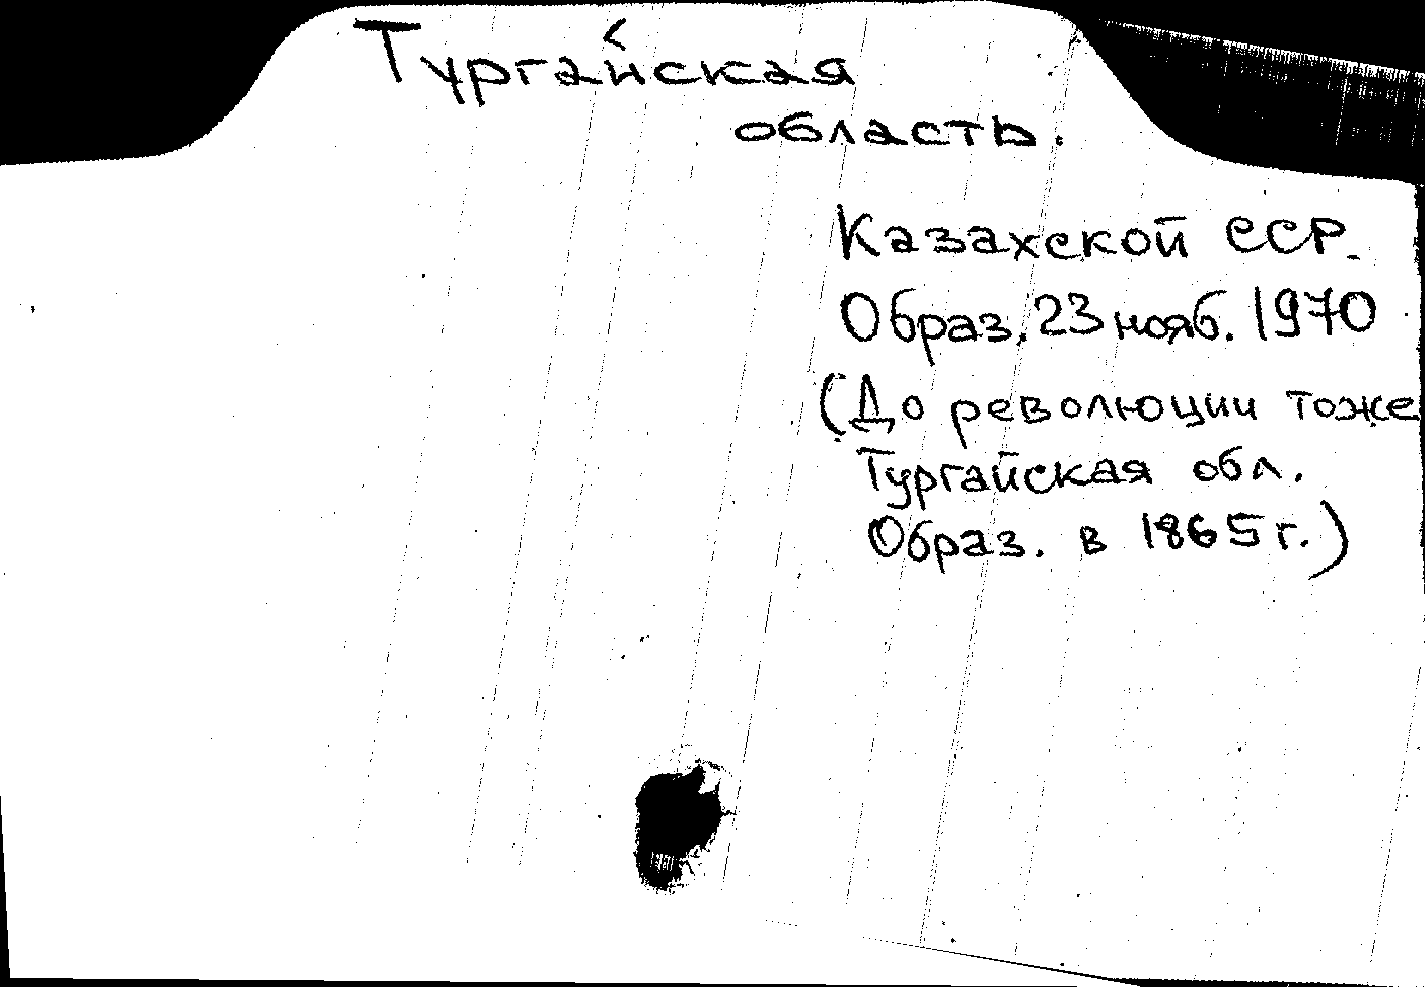 Тургайская
область.
Казахской ССР.
Образ. 23 нояб. 1970
(До революции тоже
Тургайская обл.
Образ. в 1865 г.)